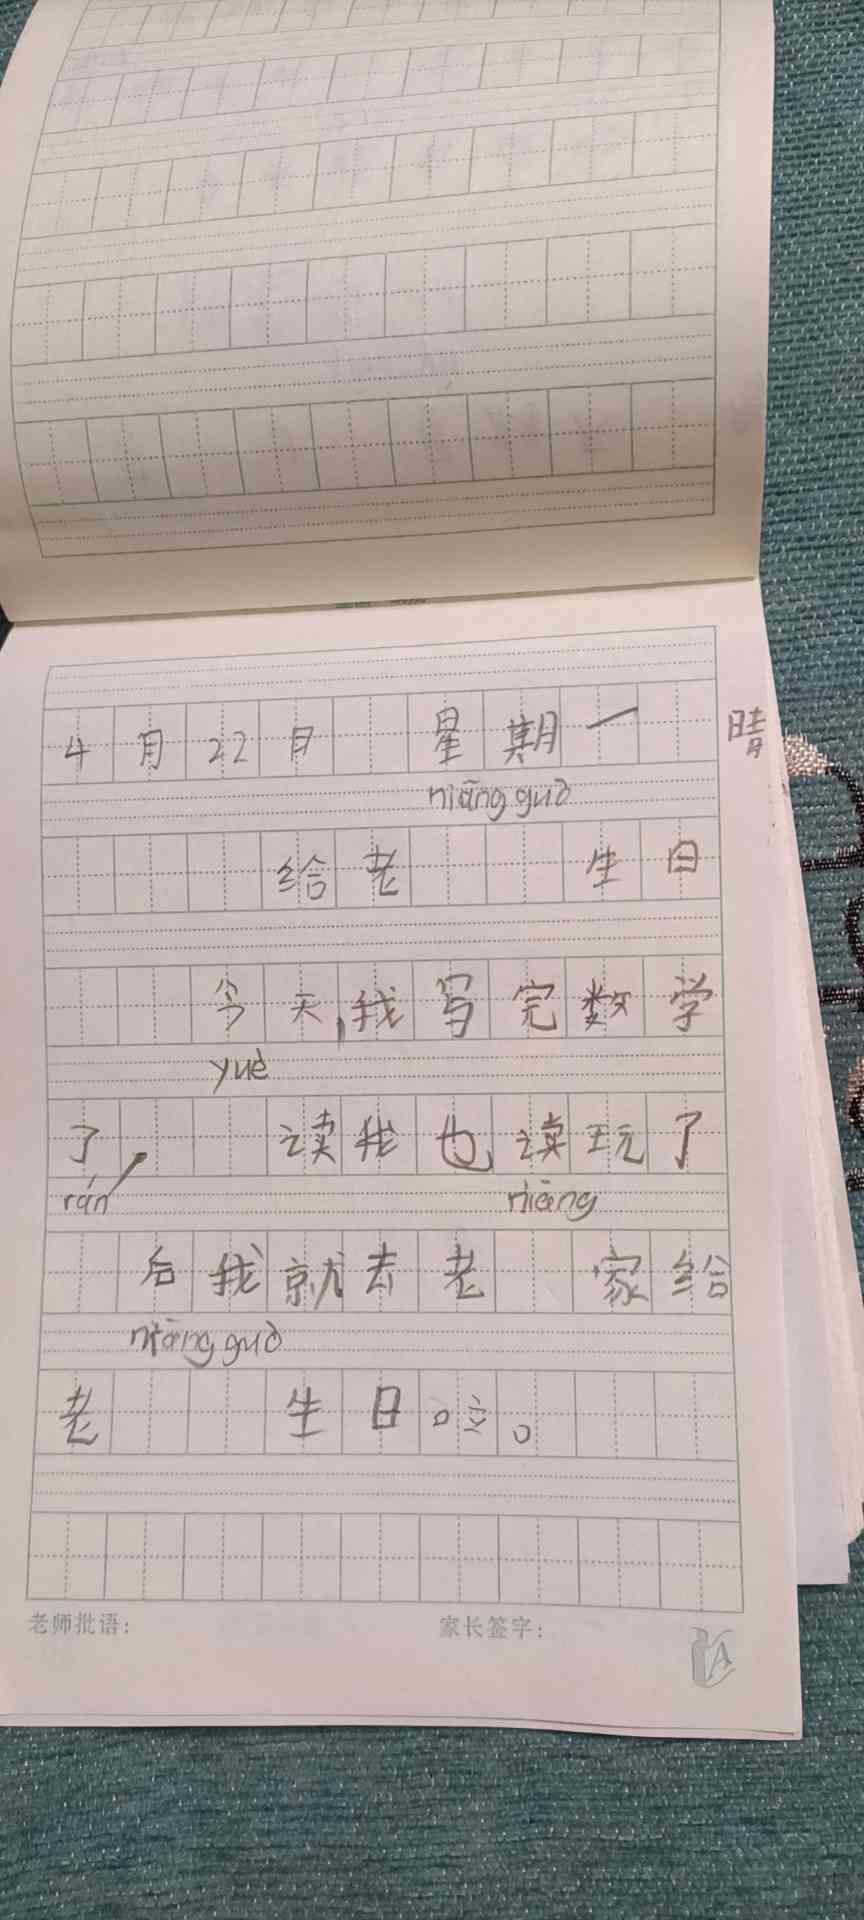 4月22日 星期一 晴
niāng guò
给老 生日
今天,我写完数学
yuè
了 读我也读玩了
rán niāng
后我就去老 家给
niāng guò
老 生日啦。
老师批语: 家长签字: